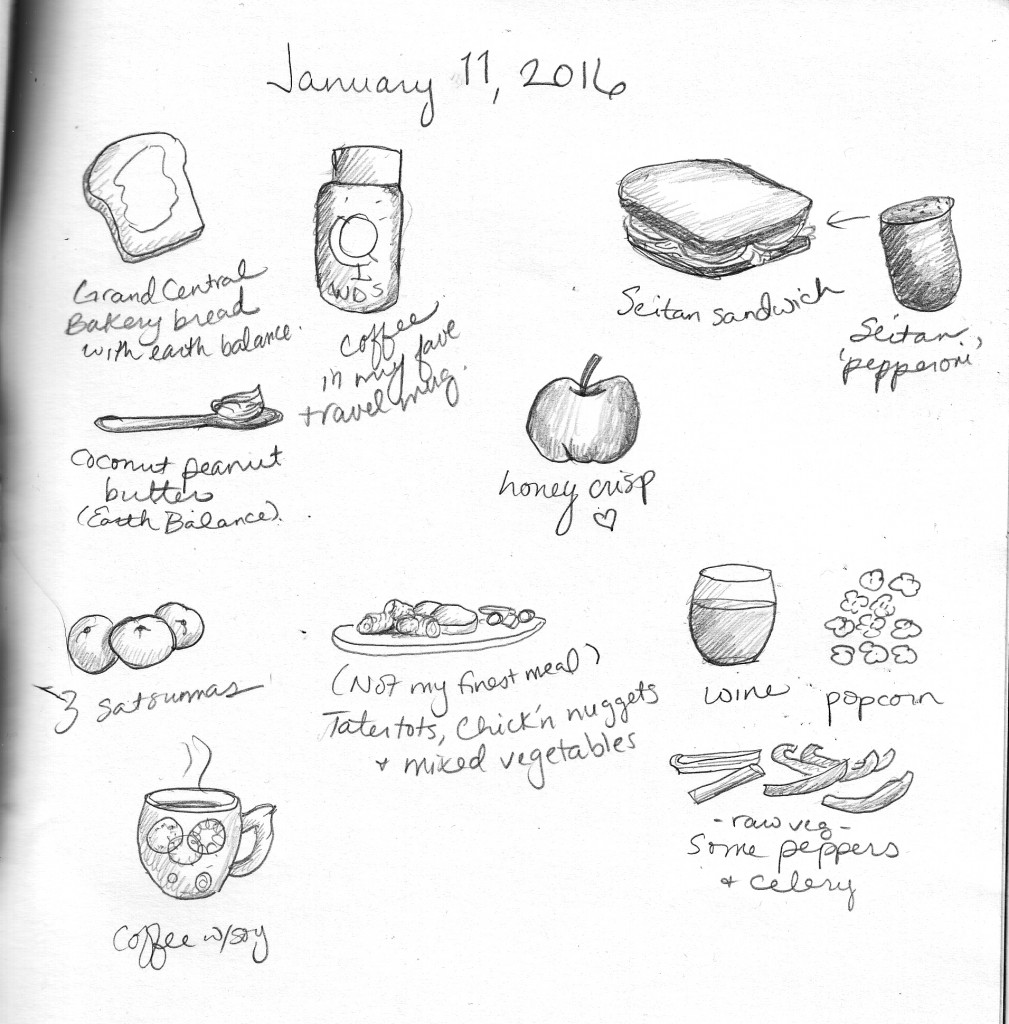 January 11, 2016
Grand Central
Bakery bread
with earth balance.
coffee
in my fave
travel mug.
Seitan sandwich
Seitan
'pepperoni'
Coconut peanut
butter
(Earth Balance).
honey crisp
3 satsumas
(Not my finest meal)
Tatertots, Chick'n nuggets
+ mixed vegetables
wine
popcorn
- raw veg -
Some peppers
+ celery
Coffee w/soy